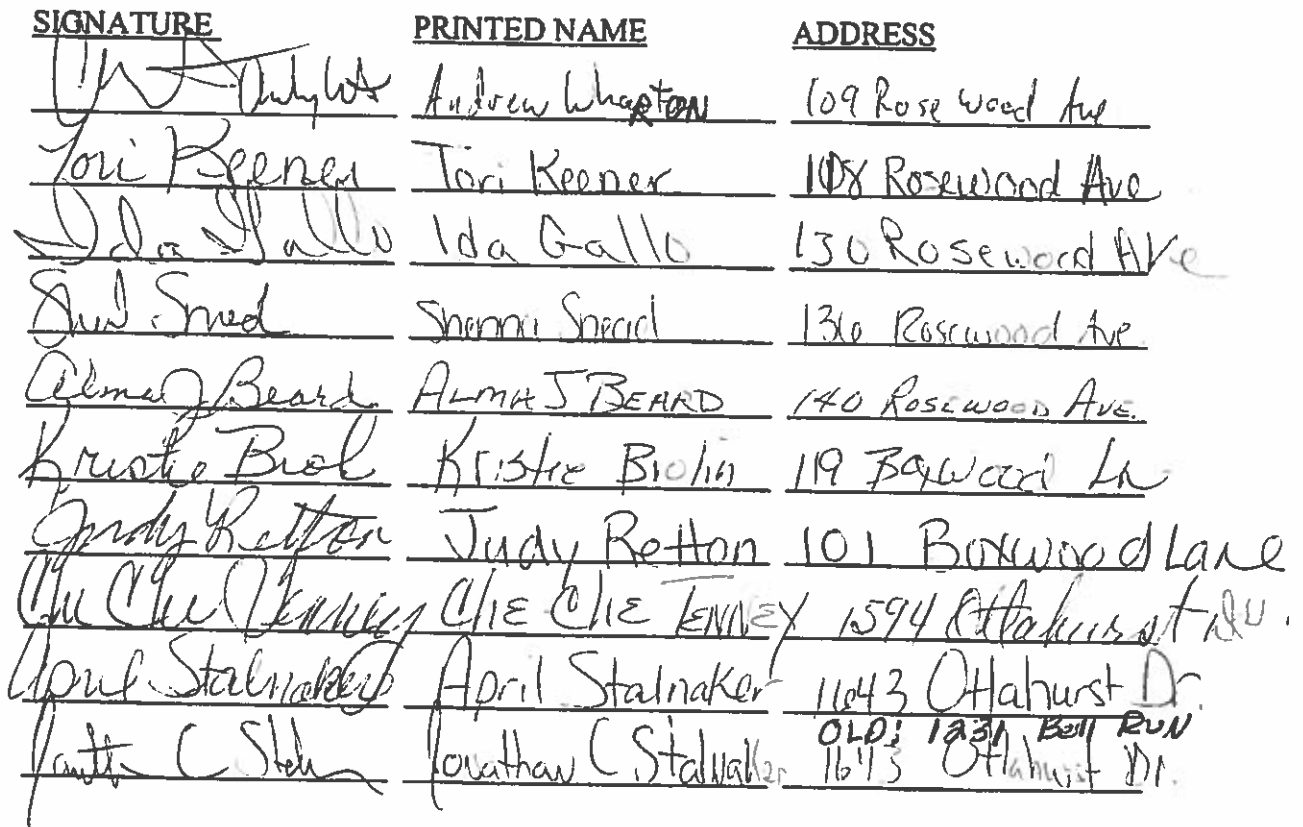 SIGNATURE PRINTED NAME ADDRESS
Andrew Wharton 109 Rosewood Ave
Tori Keener Tori Keener 108 Rosewood Ave
Ida Gallo Ida Gallo 130 Rosewood AVe
Snead Snead 136 Rosewood Ave
Alma J Beard ALMA J BEARD 140 ROSEWOOD AVE.
Kristie Kristie Biolin 119 Boxwood Ln
Judy Retton Judy Retton 101 Boxwood Lane
TENNEY 1594 Ottahurst
April Stalnaker April Stalnaker 1643 Ottahurst Dr.
OLD: 1231 Bell RUN
C Jonathan C Stalnaker 1643 Ottahurst Dr.